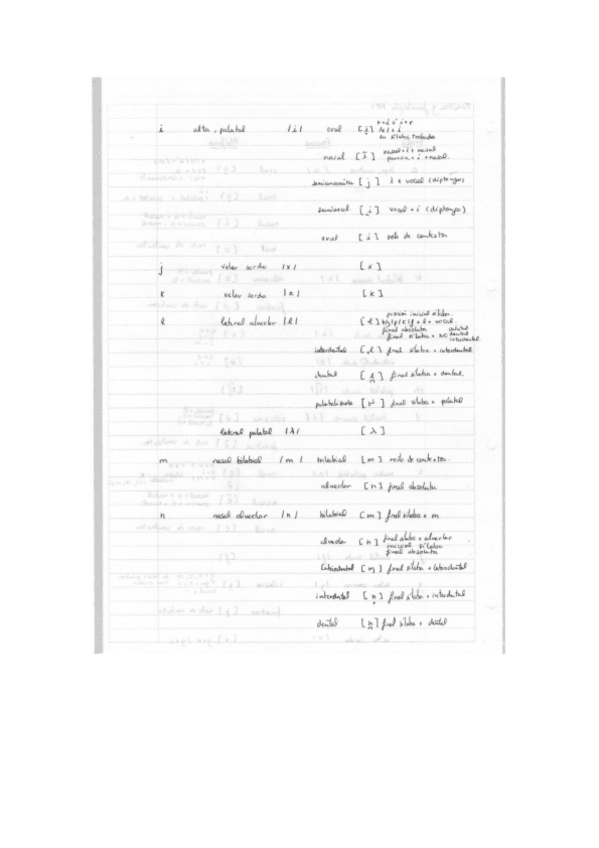 i alta, palatal /i/ oral
en sílaba trabada
nasal nasal + i + nasal
pausa + i + nasal.
semiconsonante [j] i + vocal (diptongo)
semivocal [i̯] vocal + i (diptongo)
oral [i] resto de contextos
j velar sorda /x/ [x]
k velar sorda /k/ [k]
l lateral alveolar /l/ [l] posición inicial sílaba.
+ l + vocal.
final absoluta
final sílaba +
interdental final sílaba + interdental.
dental final sílaba + dental.
palatalizada final sílaba + palatal
lateral palatal /ʎ/ [ʎ]
m nasal bilabial /m/ bilabial [m] resto de contextos.
alveolar [n] final absoluta
n nasal alveolar /n/ bilabial [m] final sílaba + m
alveolar [n] final sílaba + alveolar
inicial sílaba
final absoluta
labiodental [ɱ] final sílaba + labiodental
interdental final sílaba + interdental
dental [n̪] final sílaba + dental